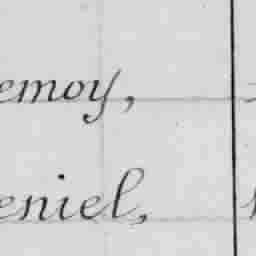 emoy,
eniel,